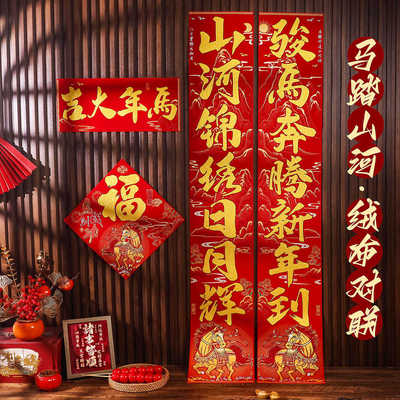 骏馬奔腾新年到
山河锦绣日月辉
馬年大吉
福
马踏山河·绒布对联
諸事皆順